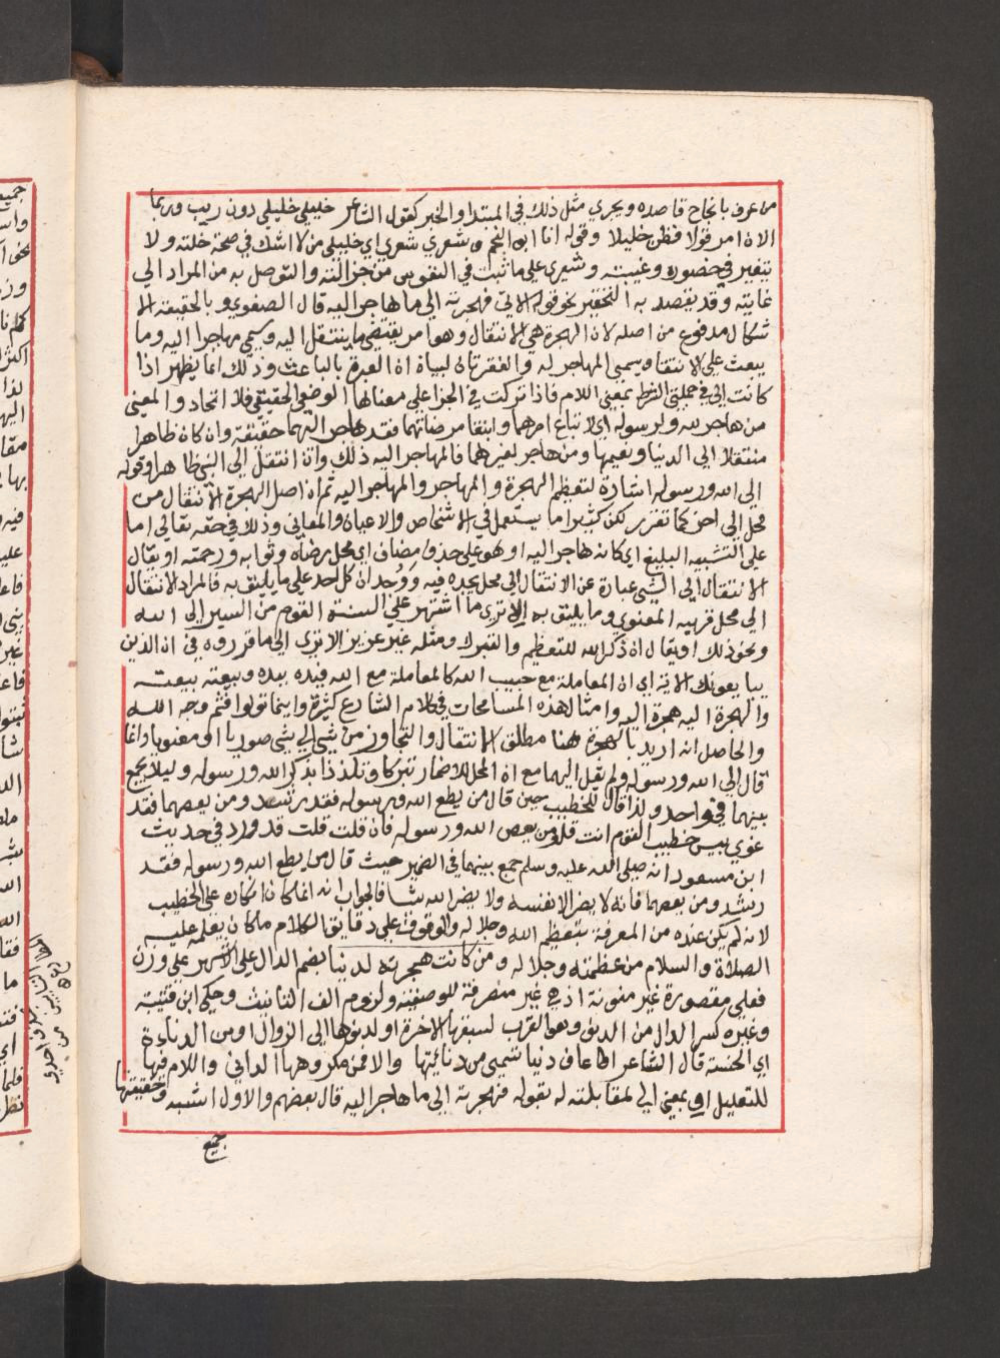 من عرف بانجاح قاصده ويجري مثل ذلك في المبتدا والخبر كقول الشاعر خليلي خليلي دون ريب وربما
الان امر قولا فظن خليلا وقوله انا ابو النجم وشعري شعري اي خليلي من لا اشك في صحة خلته ولا
يتغير في حضوره وغيبته وشعري على ما ثبت في النفوس من جزالته والتوصل به من المراد الى
غايته وقد يقصد به التحقير نحو قوله الاتي فهجرته الى ما هاجر اليه قال الصفوي وبالحقيقة الا
شكال مدفوع من اصله لان الهجرة هي الانتقال وهو امر يقتضي ما ينتقل اليه ويسمى مهاجرا اليه وما
يبعث على الانتقال ويسمى المهاجر له والفقرتان لبيان ان العبرة بالباعث وذلك انما يظهر اذا
كانت الى في جملتي الشرط بمعنى اللام فاذا تركت في الجزا على معناها الوضعي الحقيقي فلا اتحاد والمعنى
من هاجر لله ولرسوله اي لاتباع امرهما وابتغا مرضاتهما فقد هاجر اليهما حقيقة وان كان ظاهرا
منتقلا الى الدنيا ونعيمها ومن هاجر لغيرهما فالمهاجر اليه ذلك وان انتقل الى النبي ظاهرا وقوله
الى الله ورسوله اشارة لتعظيم الهجرة والمهاجر والمهاجر اليه ثم ان اصل الهجرة الانتقال من
محل الى اخر كما تقرر لكن كثيرا ما يستعمل في الاشخاص والاعيان والمعاني وذلك في حقه تعالى اما
على التشبيه البليغ اي كانه هاجر اليه او هو على حذف مضاف اي محل رضاه وثوابه ورحمته او يقال
الانتقال الى الشي عبارة عن الانتقال الى محل يجده فيه ووجدان كل احد على ما يليق به فالمراد الانتقال
الى محل قربه المعنوي وما يليق به الا ترى ما اشتهر على السنة القوم من السير الى الله
ونحو ذلك او يقال ان ذكر الله للتعظيم والتبرك ومثله غير عزيز الا ترى الى ما قرروه في ان الذين
يبايعونك الاية اي ان المعاملة مع حبيب الله كالمعاملة مع الله فيده يده وبيعته بيعته
والهجرة اليه هجرة اليه وامثال هذه المسامحات في كلام الشارع كثيرة واينما تولوا فثم وجه الله
والحاصل انه اريد بالهجرة هنا مطلق الانتقال والتجاوز من شي الى شي صوريا او معنويا وانما
قال الى الله ورسوله ولم يقل اليهما مع ان المحل للاضمار تبركا وتلذذا بذكر الله ورسوله وليلا يجمع
بينهما في واحد ولذا قال للخطيب حين قال من يطع الله ورسوله فقد رشد ومن يعصهما فقد
غوى بيس خطيب القوم انت قل ومن يعص الله ورسوله فان قلت قلت قد ورد في حديث
ابن مسعود انه صلى الله عليه وسلم جمع بينهما في الضمير حيث قال من يطع الله ورسوله فقد
رشد ومن يعصهما فانه لا يضر الا نفسه ولا يضر الله شيا فالجواب انه انما كان انكاره على الخطيب
لانه لم يكن عنده من المعرفة بتعظيم الله وجلاله والوقوف على دقايق الكلام ما كان يعلمه عليه
الصلاة والسلام من عظمته وجلاله ومن كانت هجرته لدنيا بضم الدال على الاشهر على وزن
فعلى مقصورة غير منونة اذ هي غير منصرفة للوصفية ولزوم الف التانيث وحكى ابن قتيبة
وغيره كسر الدال من الدنو وهو القرب لسبقها الاخرة او لدنوها الى الزوال او من الدناءة
اي الخسة قال الشاعر اعاف دنيا تسمى من دنائتها والا فمن مكروهها الداني واللام فيها
للتعليل او بمعنى الى لمقابلته له بقوله فهجرته الى ما هاجر اليه قال بعضهم والاول اشبه وحقيقتها
جميع